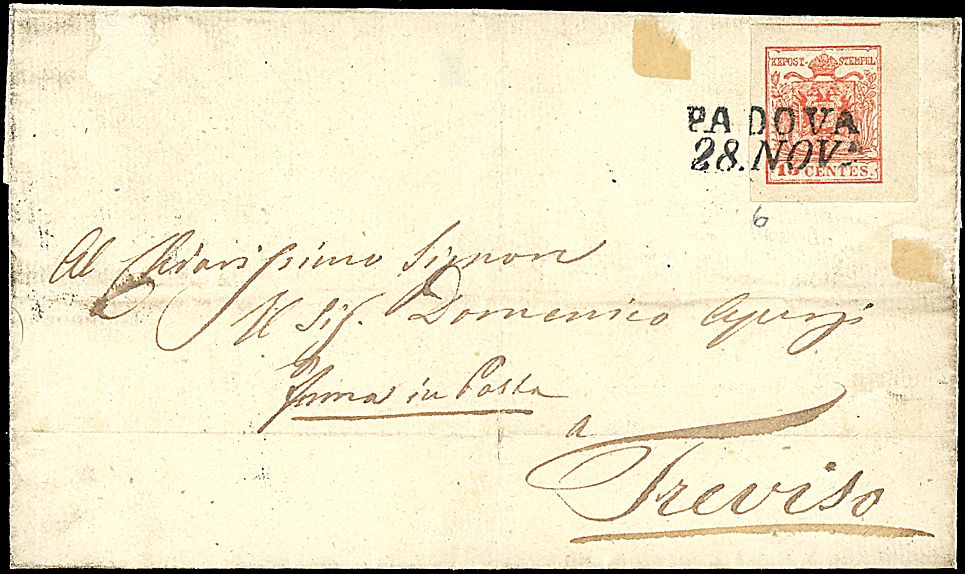 KKPOST-STEMPEL
PADOVA
28. NOV.
15 CENTES.
6
Al Chiarissimo Signor
Il Sig. Domenico
ferma in Posta
a
Treviso